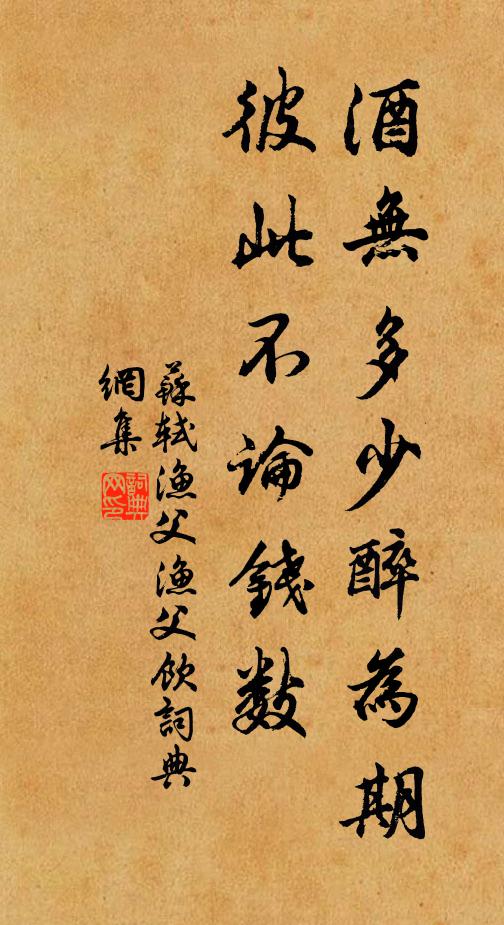 酒無多少醉為期
彼此不論錢數
蘇軾漁父漁父飲詞典
網集
詞典
网印